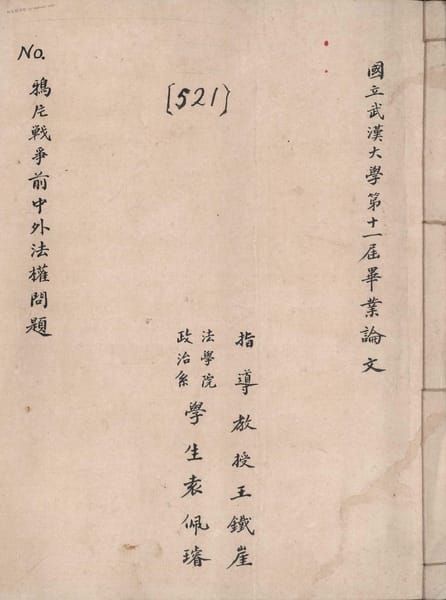 國立武漢大學第十一屆畢業論文
[521}
指導教授王鐵崖
法學院
政治系
學生袁佩璿
No.
鴉片戰爭前中外法權問題